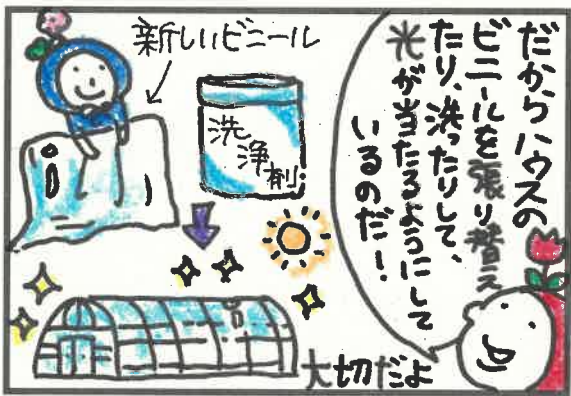 だからハウスの
ビニールを張り替え
たり、洗ったりして、
光が当たるようにして
いるのだ！
新しいビニール
洗
浄
剤
大切だよ